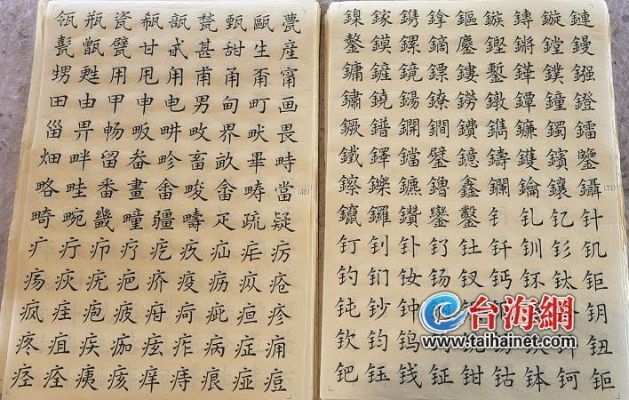 瓴瓶瓷瓻瓿甃甄甌甍
甏甑甓甘甙甚甜生産
甥甦用甩甪甫甬甭甯
田由甲申电男甸町画
甾畀畅畈畊畋界畎畏
畑畔留畚畛畜畝畢畤
略畦番畫畬畯畲畴當
畸畹畿疃疆疇疋疏疑
疒疔疖疗疙疚疝疟疠
疡疢疣疤疥疫疬疭疮
疯疰疱疲疳疴疵疸疹
疼疽疾痂痃痄病症痈
痉痊痍痎痒痔痕痖痘
鎳鎵鎸鎽鏂鏃鏄鏇鏈
鏊鏌鏍鏑鏖鏗鏘鏜鏝
鏞鏟鏡鏢鏤鏨鏵鏷鏹
鏽鐃鐋鐐鐒鐓鐔鐘鐙
鐝鐠鐦鐧鐨鐫鐮鐲鐳
鐵鐸鐺鐾鐿鑄鑊鑌鑒
鑔鑠鑣鑥鑫鑭鑰鑲鑷
鑹鑼鑽鑾鑿钅钆钇针
钉钊钋钌钍钎钏钐钒
钓钔钕钖钗钙钚钛钜
钝钞钟钥
钦钧钮
钯钰钱钲钳钴钵钶
台海網
www.taihainet.com